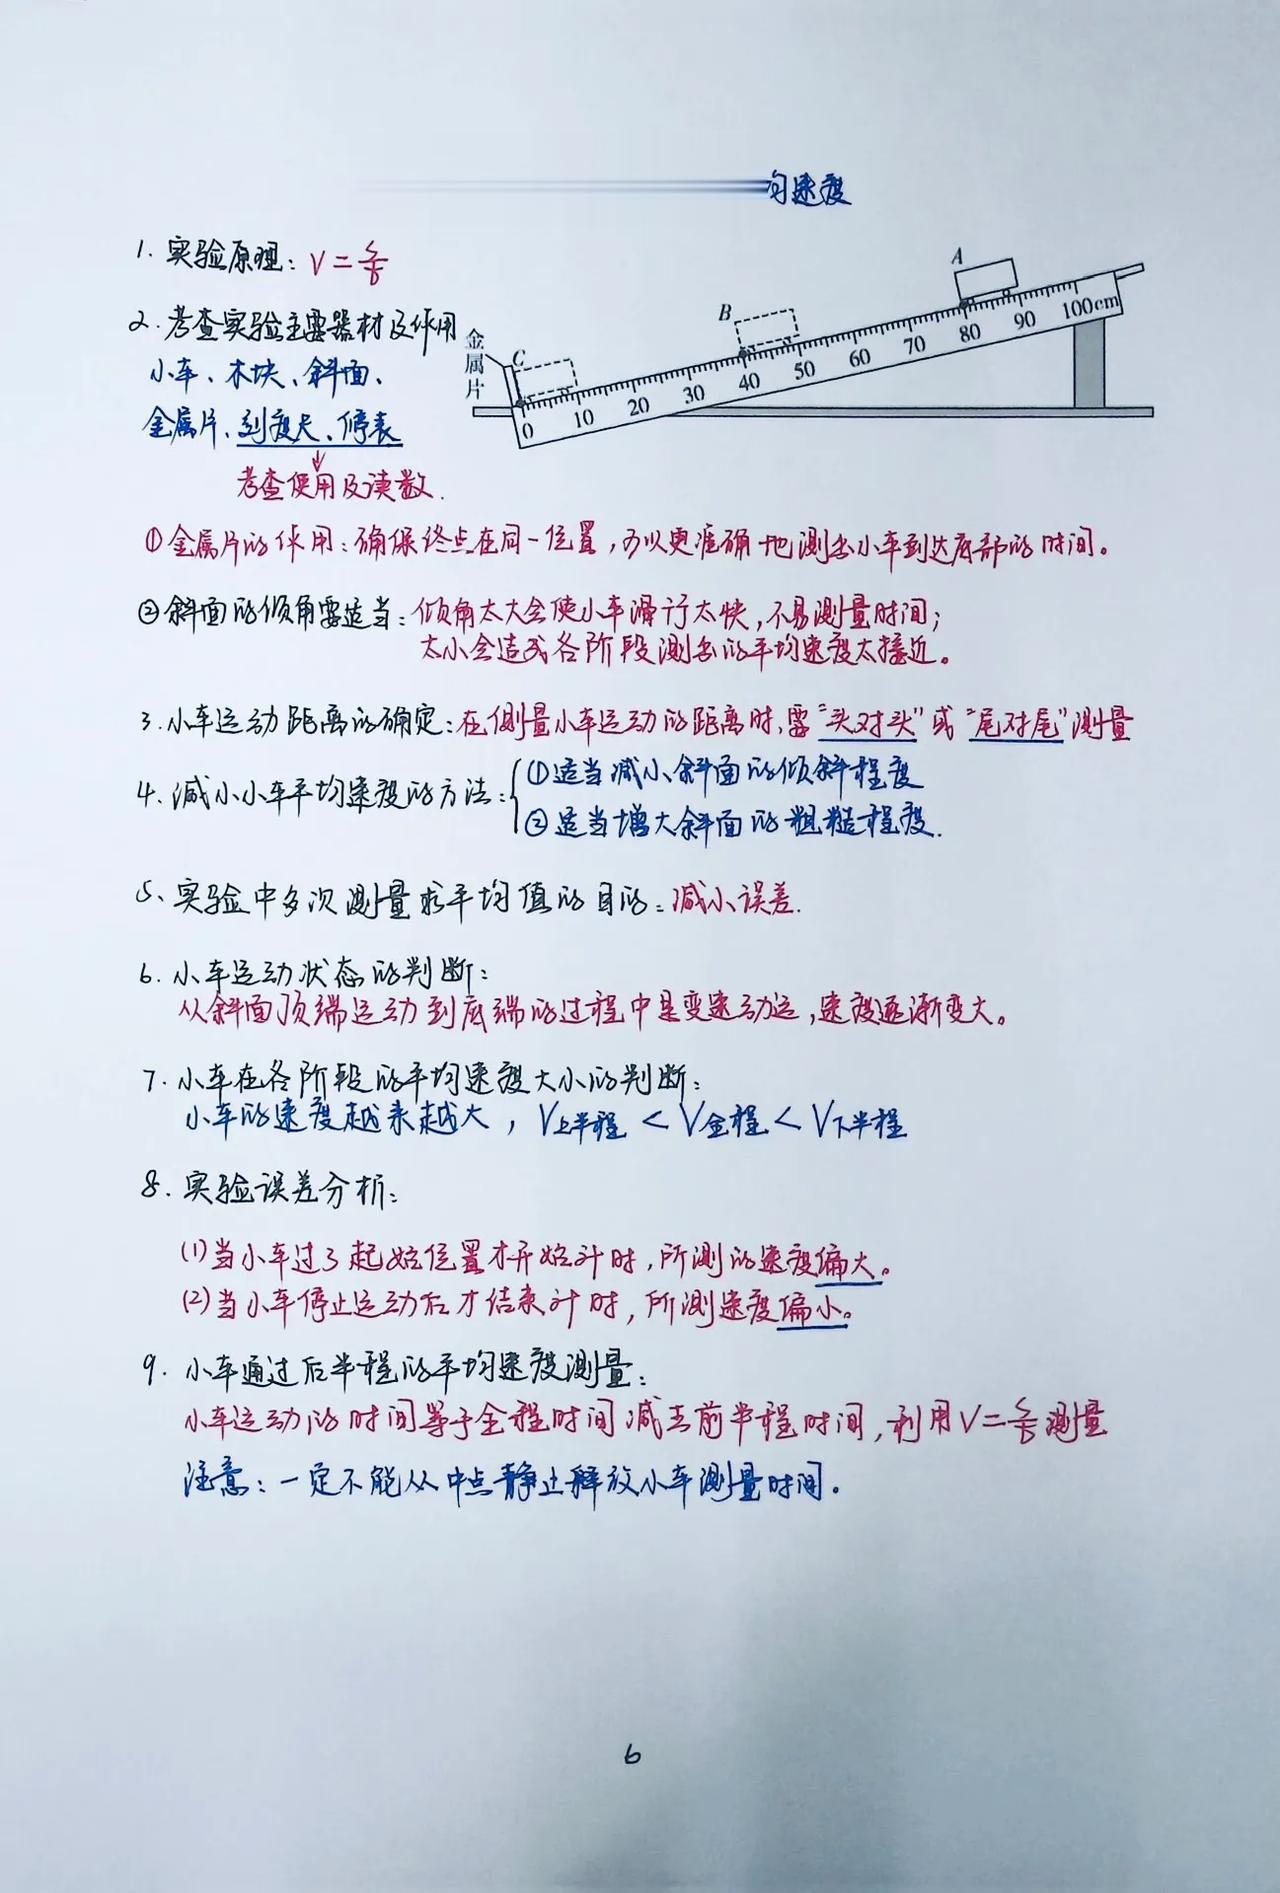 匀速度
1. 实验原理：V=s/t
2. 考查实验主要器材及作用
小车、木块、斜面、
金属片、刻度尺、停表
考查使用及读数.
金属片
C
B
A
0 10 20 30 40 50 60 70 80 90 100cm
①金属片的作用：确保终点在同一位置，可以更准确地测出小车到达底部的时间。
②斜面的倾角要适当：倾角太大会使小车滑行太快，不易测量时间；
太小会造成各阶段测出的平均速度太接近。
3. 小车运动距离的确定：在测量小车运动的距离时，需"头对头"或"尾对尾"测量
4. 减小小车平均速度的方法：
①适当减小斜面的倾斜程度
②适当增大斜面的粗糙程度.
5、实验中多次测量求平均值的目的：减小误差.
6. 小车运动状态的判断：
从斜面顶端运动到底端的过程中是变速动运，速度逐渐变大。
7. 小车在各阶段的平均速度大小的判断：
小车的速度越来越大，V上半程<V全程<V下半程
8. 实验误差分析：
(1)当小车过了起始位置才开始计时，所测的速度偏大。
(2)当小车停止运动后才结束计时，所测速度偏小。
9. 小车通过后半程的平均速度测量：
小车运动的时间等于全程时间减去前半程时间，利用V=s/t测量
注意：一定不能从中点静止释放小车测量时间。
6